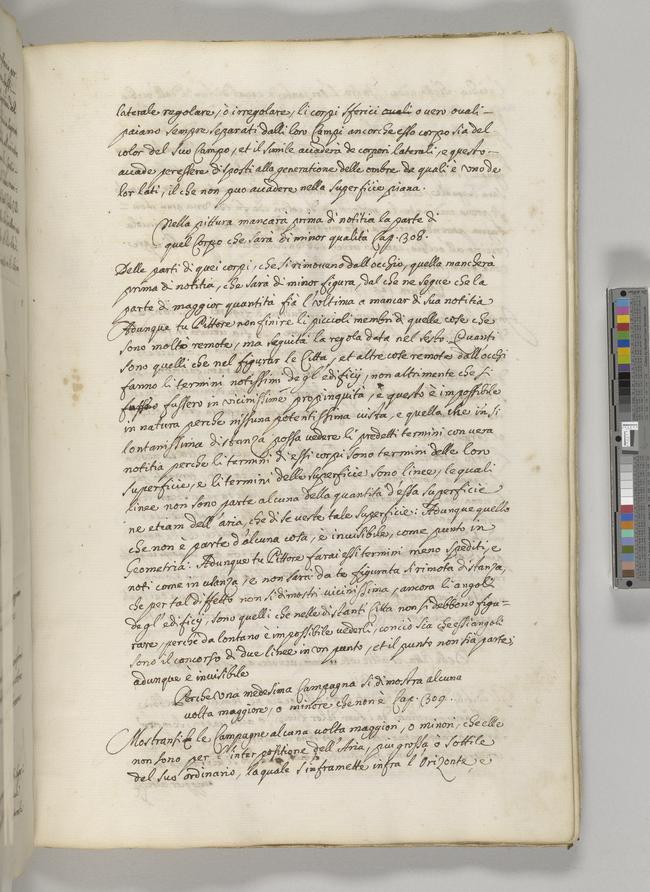 laterale regolare, ò irregolare, li corpi sferici ovali overo ovali
paiano sempre separati dalli loro Campi ancorche esso corpo sia del
color del suo Campo, et il simile accaderà de corpori laterali, e questo
accade per essere disposti alla generatione delle ombre da quali è uno de
lor lati, il che non puo accadere nella superficie piana.
Nella pittura mancarà prima di notitia la parte di
quel Corpo che sarà di minor qualità Cap. 308.
Delle parti di quei corpi, che si rimoveno dall'occhio, quella mancherà
prima di notitia, che sarà di minor figura, dal che ne segue che la
parte di maggior quantità fia l'ultima a mancar di sua notitia
Adunque tu Pittore non finire li piccioli membri di quelle cose che
sono molto remote, ma seguita la regola data nel sesto. Quanti
sono quelli che nel figurar le Citta, et altre cose remote dall'occhi
fanno li termini notissimi degl'edificij, non altrimente che si
fussero in vicinissime propinquità, e questo è impossibile
in natura perche nissuna potentissima vista, e quella che in si
lontanissima distanza possa vedere li predetti termini con vera
notitia perche li termini di essi corpi sono termini delle loro
superficie, e li termini delle superficie sono linee, le quali
linee non sono parte alcuna della quantità d'essa superficie
ne etiam dell'aria, che di se veste tale superficie: Adunque quello
che non è parte d'alcuna cosa, è invisibile, come punto in
Geometria: Adunque tu Pittore farai essi termini meno spediti, e
noti come in usanza, e non sarà da te figurata si rimota distanza,
che per tal diffetto non si dimostri vicinissima, ancora li angoli
degl'edificij, sono quelli che nelle distanti Citta non si debbono figu=
rare, perche da lontano è impossibile vederli, conciò sia che essi angoli
sono il concorso di due linee in un punto, et il punto non hà parte;
adunque è invisibile
Perche una medesima Campagna si dimostra alcuna
volta maggiore, o minore che non è Cap. 309.
Mostransi le Campagne alcuna volta maggiori, o minori, che elle
non sono per l'interpositione dell'Aria, piu grossa ò sottile
del suo ordinario, la quale s'inframette infra l'Orizonte, e